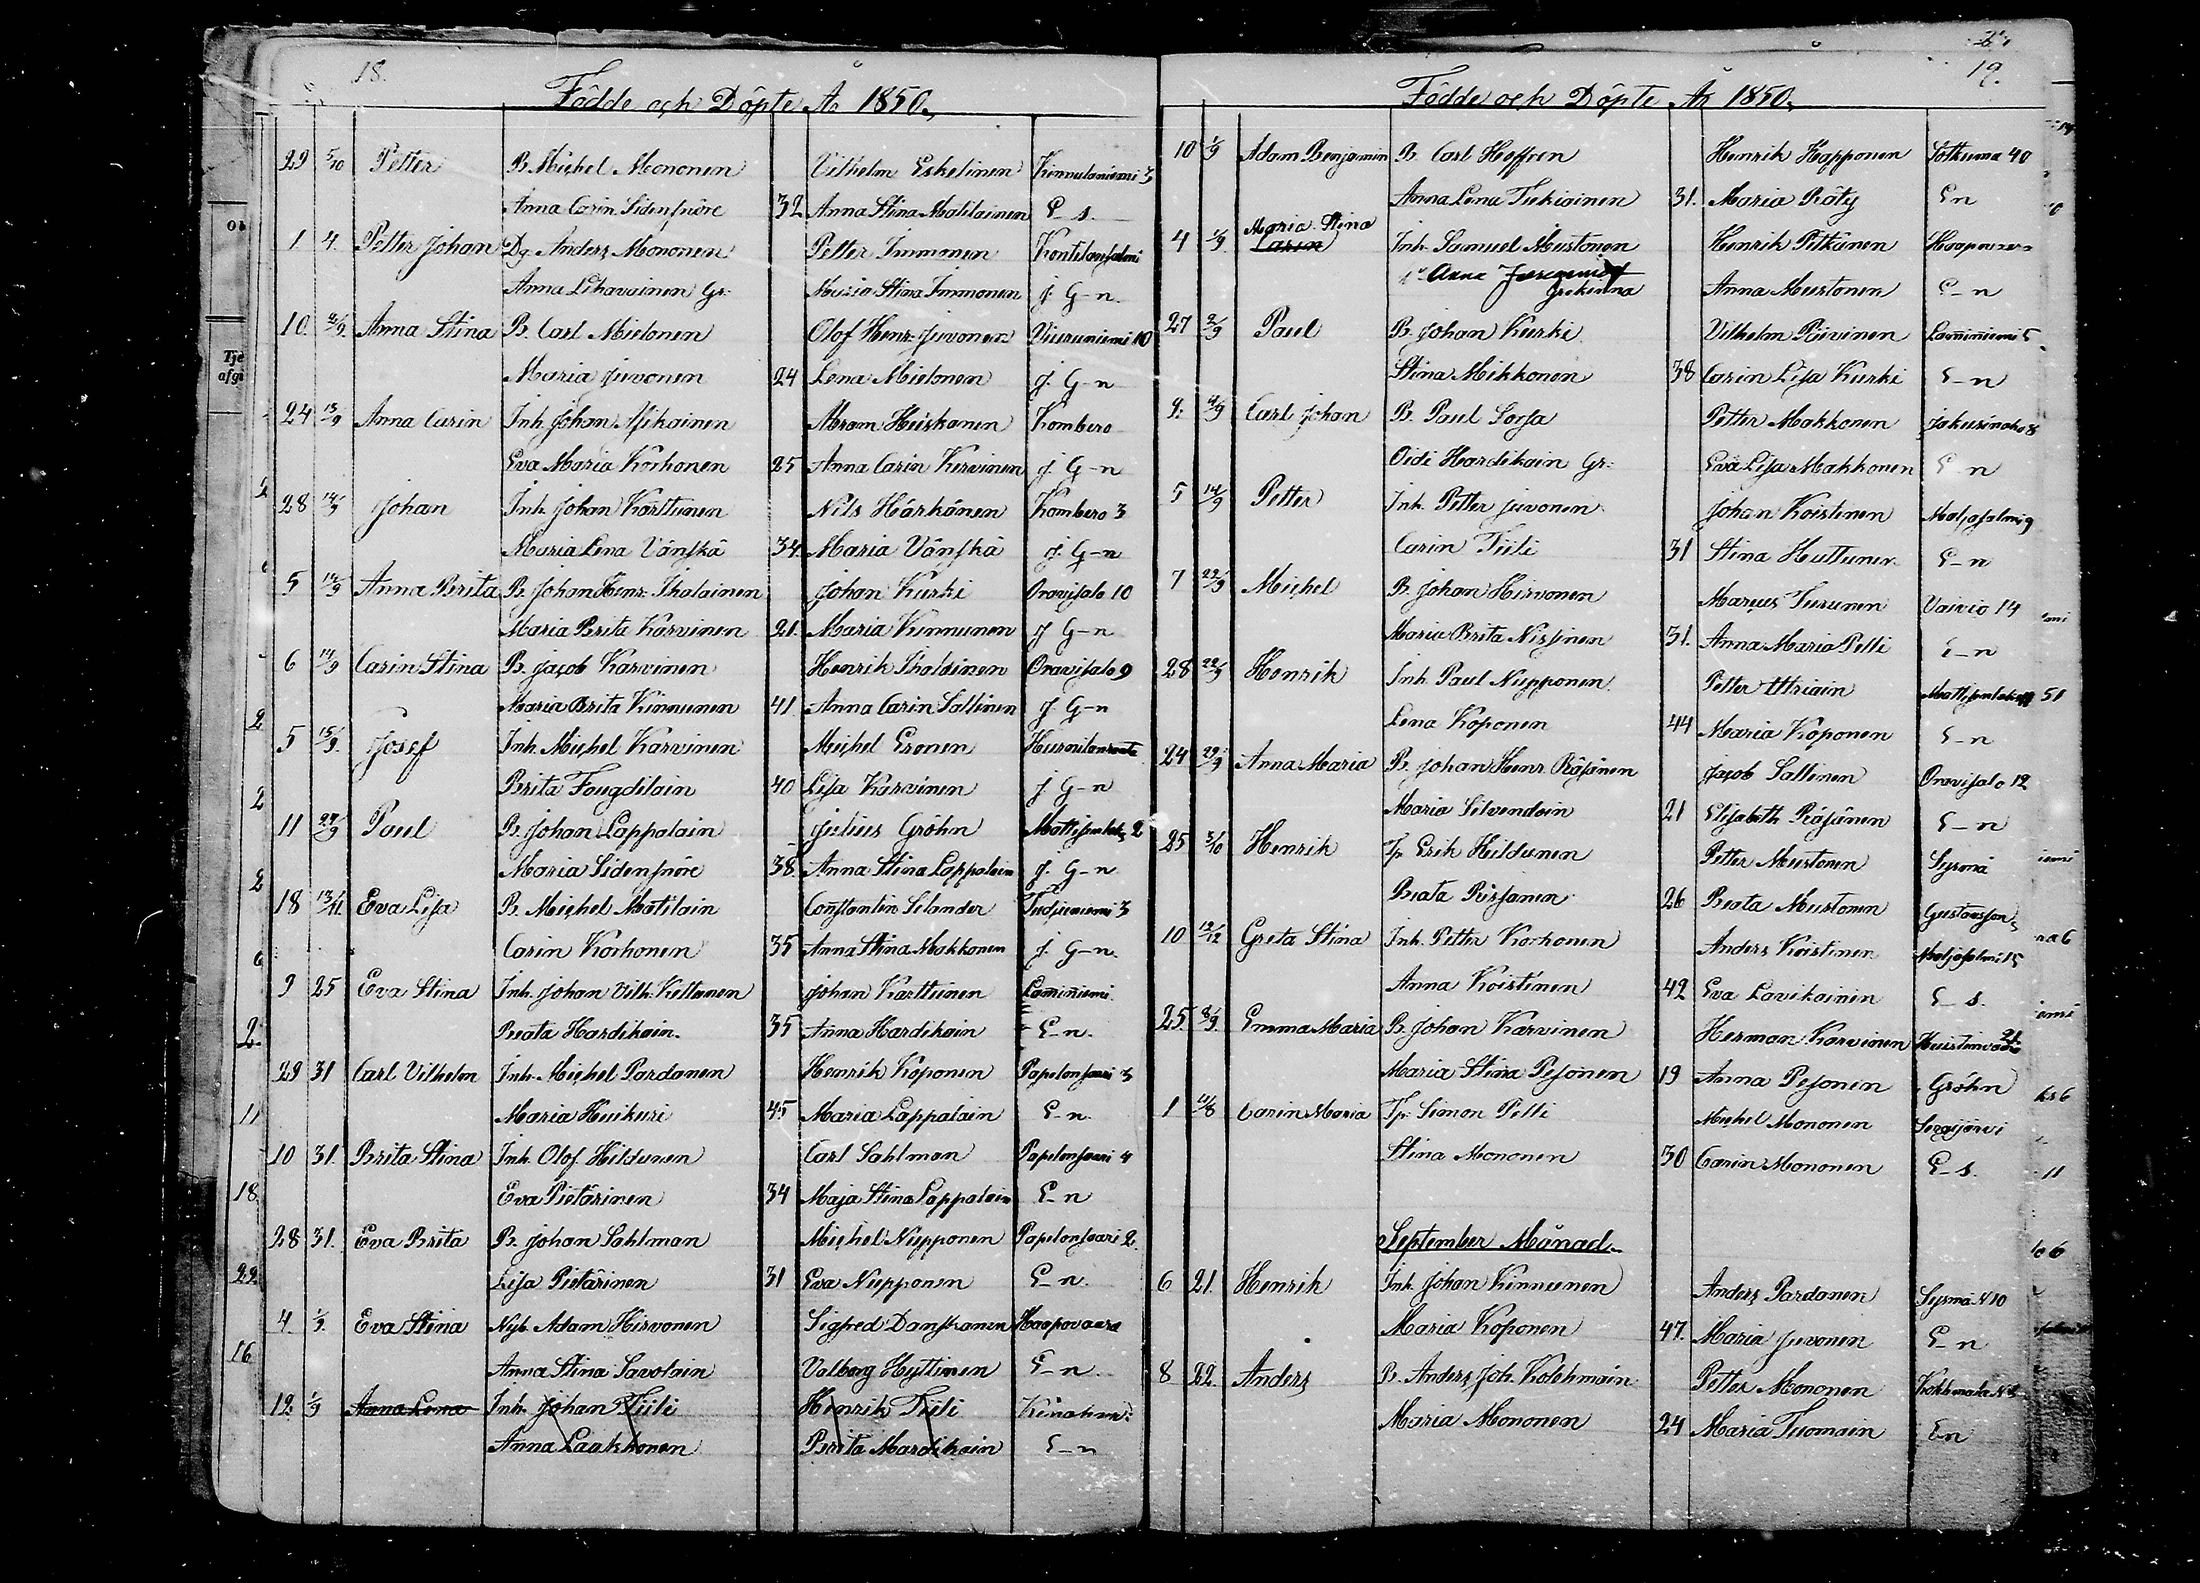 18.
Födde och Döpte År 1850.
29 5/10 Petter B. Michel Mononen Vilhelm Eskelinen Kinnulaniemi 3
Anna Carin Sidensnöre 32 Anna Stina Matilainen E s.
1 4. Petter Johan Dg. Anders Mononen Petter Immonen Kontilansalmi
Anna Lihavainen Gr. Maria Stina Immonen J. G-n
10. Anna Stina B. Carl Mielonen Olof Henr. Juvonen Viuruniemi 10
Maria Juvonen 24 Lena Mielonen J. G-n
24 13/9 Anna Carin Inh. Johan Asikainen Abram Heiskanen Kombero
Eva Maria Korhonen 25 Anna Carin Kervinen J. G-n
28 14/9 Johan Inh. Johan Karttunen Nils Härkönen Kombero 3
Maria Lena Vänskä 34 Maria Vänskä J. G-n
5 14/9 Anna Brita B. Johan Henr. Ihalainen Johan Kurki Oravisalo 10
Maria Brita Karvinen 21. Maria Kinnunen J G-n
6 14/9 Carin Stina B. Jacob Karvinen Henrik Ihalainen Oravisalo 9
Maria Brita Kinnunen 41 Anna Carin Sallinen J. G-n
5 15/9. Josef Inh. Michel Karvinen Michel Eronen
Brita Fougdilain 40 Lisa Karvinen J G-n
11 27/9 Paul B. Johan Lappalain Julius Gröhn 2
Maria Sidensnöre 38 Anna Stina Lappalain J. G-n
18 13/11. Eva Lisa B. Michel Matilain Constantin Selander 3
Carin Korhonen 35 Anna Stina Makkonen J. G-n.
9 25 Eva Stina Inh. Johan Vilh. Kettunen Johan Karttunen Lamminniemi
Beata Hardikain. 35 Anna Hardikain E-n.
29 31 Carl Vilhelm Inh. Michel Pardanen Henrik Koponen Papelonsaari 3
Maria Huikuri 45 Maria Lappalain E-n.
10 31. Brita Stina Inh. Olof Hildunen Carl Sahlman Papelonsaari 4
Eva Pietarinen 34 Maja Stina Lappalain E-n
28 31. Eva Brita B. Johan Sahlman Michel Nupponen Papelonsaari 2.
Lisa Pietarinen 31 Eva Nupponen E-n.
4. 1/9. Eva Stina Nyb. Adam Hirvonen Sigfred Danskanen Haapovaara
Anna Stina Savolain Valborg Hyttinen E-n.
12 1/9 Anna Lena Inh. Johan Tiili Henrik Tiili
Anna Laakkonen Brita Mardikain E-n
19.
Födde och Döpte År 1850.
10 1/9 Adam Benjamin B. Carl Hoffren Henrik Happonen Sotkuma 40
Anna Lena Tiekiainen 31. Maria Räty E n
4 1/9 Maria Stina Carin Inh. Samuel Mustonen Henrik Pitkänen
Anna Grekinna Anna Mustonen E-n
27 2/9 Paul B. Johan Kurki Vilhelm Piirinen Lamminniemi 5
Stina Mikkonen 38 Carin Lisa Kurki E-n
9. 4/9 Carl Johan B. Paul Sorsa Petter Makkonen 8
Oidi Hardikain Gr. Eva Lisa Makkonen E n
5 14/9 Petter Inh. Petter Juvonen Johan Koistinen Maljasalmi 9
Carin Tiili 31 Stina Huttunen E-n
7 22/9 Michel B. Johan Hirvonen Marcus Turunen Vaivio 14
Maria Brita Nissinen 31. Anna Maria Pelli E-n
28 22/9 Henrik Inh. Paul Nupponen Petter Utriain 51
Lena Koponen 44 Maria Koponen E-n
24 29/9 Anna Maria B. Johan Henr. Räsänen Jacob Sallinen Oravisalo 12
Maria Silvendoin 21 Elisabeth Räsänen E-n
25 3/10 Henrik Tp. Erik Hildunen Petter Mustonen Sysmä
Beata Pirsjanen 26 Beata Mustonen Gustavsson
10 12/12 Greta Stina Inh. Petter Korhonen Anders Koistinen Maljasalmi 15
Anna Koistinen 42 Eva Lavikainen E-s.
25 8/9. Emma Maria B. Johan Karvinen Herman Karvinen 21.
Maria Stina Pesonen 19 Anna Pesonen Gröhn
1 11/8 Carin Maria Tp. Simon Pelli Michel Mononen Särgijärvi
Stina Mononen 30 Carin Mononen E-s.
September Månad
6 21. Henrik Inh. Johan Kinnunen Anders Pardanen Sysmä N 10
Maria Koponen 47. Maria Juvonen E-n
8 22. Anders B. Anders Joh. Kolehmain Petter Mononen
Maria Mononen 24 Maria Tuomain E-n